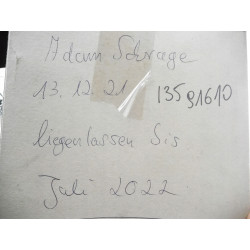 Adam Schrage
13.12.21 13591610
liegenlassen bis
Juli 2022